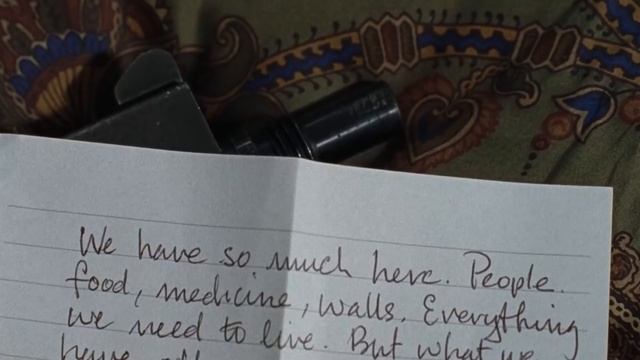 We have so much here. People.
food, medicine, walls. Everything
we need to live. But what we
have